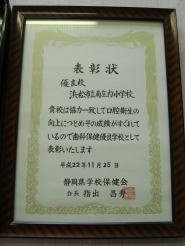 表彰状
優良校
浜松市立南庄内小学校
貴校は協力一致して口腔衛生の
向上につとめその成績がすぐれて
いるので歯科保健優良学校として
表彰いたします
平成22年11月25日
静岡県学校保健会
会長 指出 昌秀